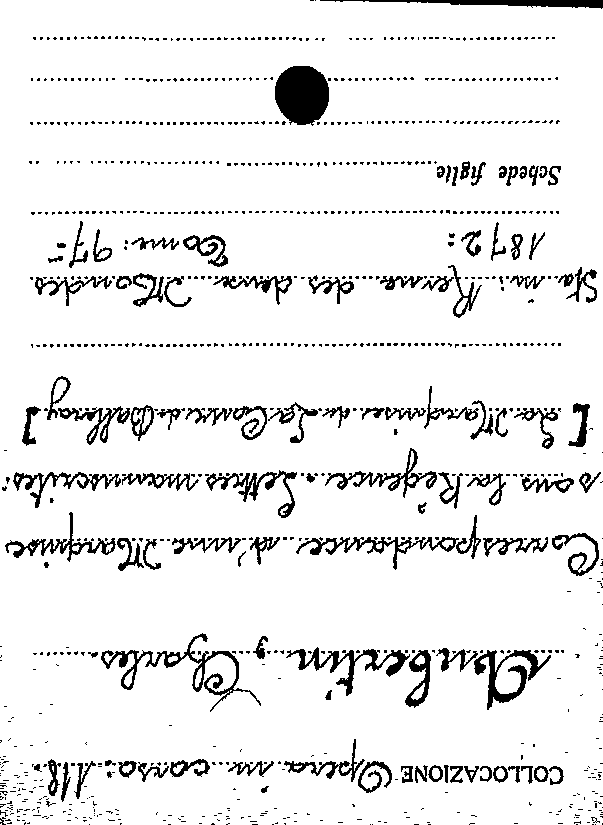 COLLOCAZIONE Opera in corso: 118.
Aubertin, Charles.
Correspondance d'une Marquise
sous la Régence. Lettres manuscrites:
[La Marquise de La Cour de Balleroy]
Sta in: Revue des deux Mondes
1872: Tome: 97=
Schede figlie